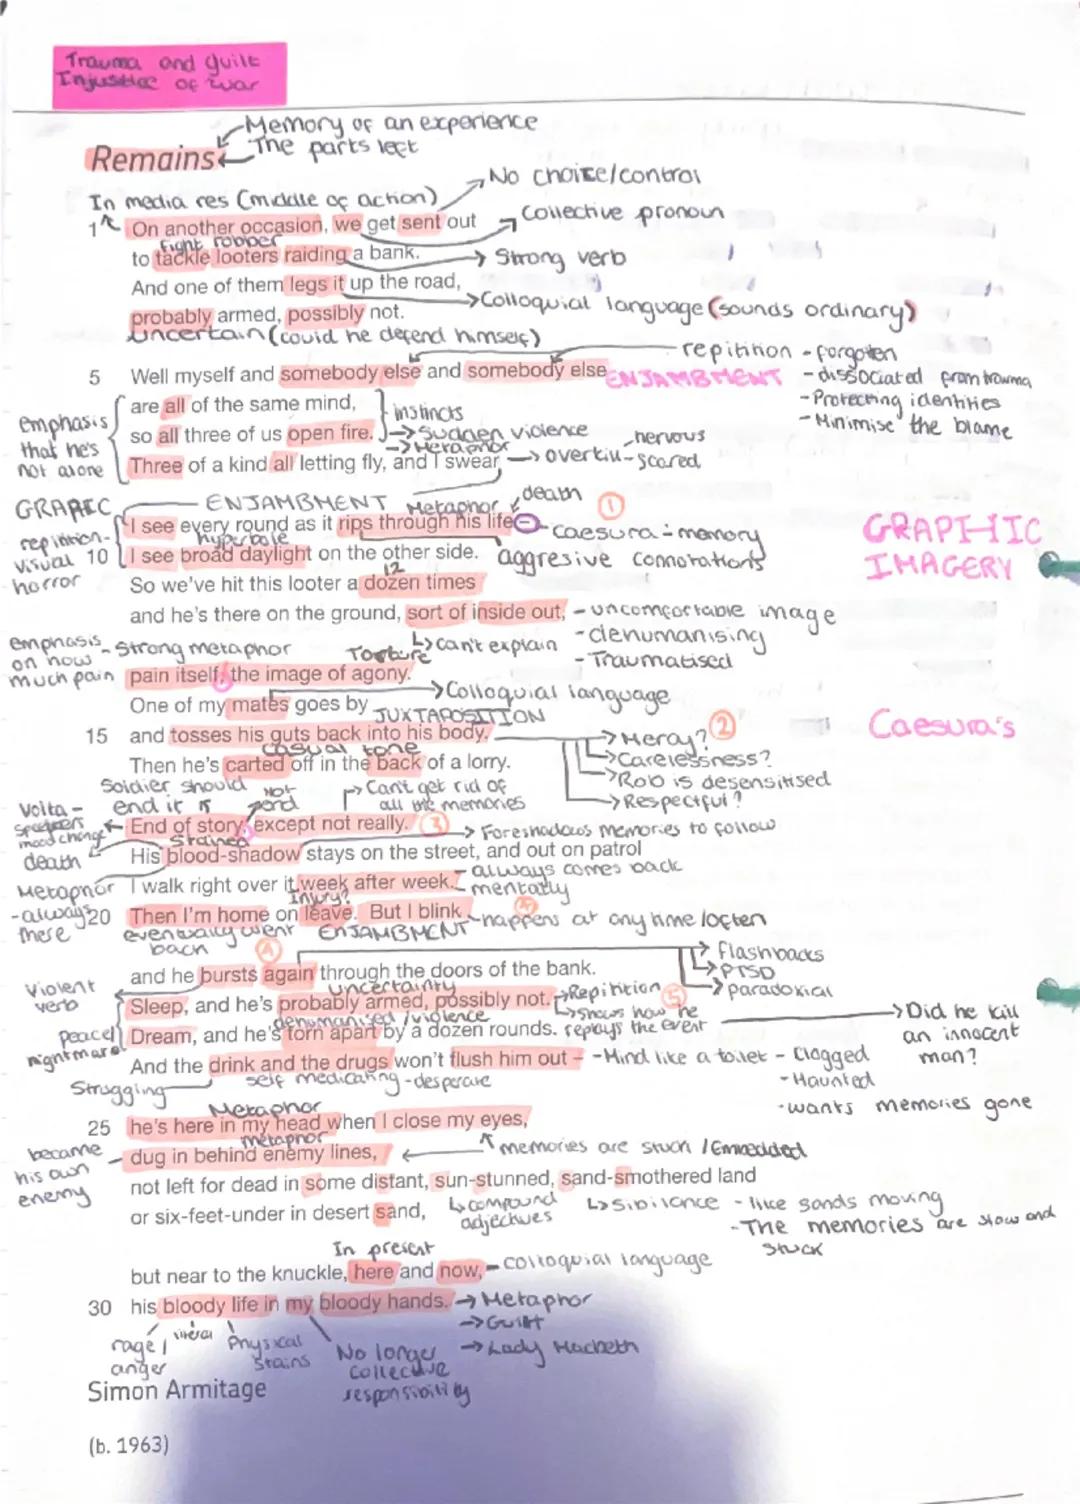 Trauma and guilt
Injustice of war
Memory of an experience
The parts left
Remains
No choice/control
In media res (middle of action)
Collective pronoun
1 On another occasion, we get sent out
Fight robber
to tackle looters raiding a bank.
Strong verb
And one of them legs it up the road,
Colloquial language (sounds ordinary)
probably armed, possibly not.
uncertain (could he defend himself)
repitition - forgotten
- dissociated from trauma
- Protecting identities
- Minimise the blame
5 Well myself and somebody else and somebody else
ENJAMBMENT
are all of the same mind,
instincts
emphasis that he's not alone
so all three of us open fire.
Sudden violence
Metaphor
nervous
Three of a kind all letting fly, and I swear
overkill - scared
GRAPHIC
ENJAMBMENT
Metaphor
death
1
I see every round as it rips through his life –
caesura - memory
GRAPHIC
IMAGERY
repitition - visual horror
hyperbole
10 I see broad daylight on the other side.
aggresive connotations
12
So we've hit this looter a dozen times
and he's there on the ground, sort of inside out,
- uncomfortable image
- dehumanising
- Traumatised
can't explain
emphasis on how much pain
- Strong metaphor
Torture
pain itself, the image of agony.
Colloquial language
One of my mates goes by
JUXTAPOSITION
Caesura's
15 and tosses his guts back into his body.
Mercy?
2
Carelessness?
Rob is desensitised
Respectful?
casual tone
Then he's carted off in the back of a lorry.
Soldier should end it
Not
Can't get rid of all the memories
Volta - speakers mood change
End of story, except not really.
3
Foreshadows memories to follow
Stained
death
His blood-shadow stays on the street, and out on patrol
Metaphor - always there
I walk right over it week after week.
- always comes back mentally
Injury?
20 Then I'm home on leave. But I blink
- happens at any time/often
eventually went back
ENJAMBMENT
4
flashbacks
PTSD
paradoxial
and he bursts again through the doors of the bank.
Violent verb
uncertainty
Sleep, and he's probably armed, possibly not.
Repitition
5
Shows how he replays the event
Did he kill an innocent man?
dehumanised/violence
Peace/nightmare
Dream, and he's torn apart by a dozen rounds.
And the drink and the drugs won't flush him out –
- Mind like a toilet - clogged
- Haunted
- wants memories gone
Struggling
self medicating - desperate
Metaphor
25 he's here in my head when I close my eyes,
metaphor
memories are stuck / Embedded
became his own enemy
dug in behind enemy lines,
not left for dead in some distant, sun-stunned, sand-smothered land
compound adjectives
Sibilance - like sands moving
- The memories are slow and stuck
or six-feet-under in desert sand,
In present
but near to the knuckle, here and now,
- colloquial language
30 his bloody life in my bloody hands.
Metaphor
Guilt
Lady Macbeth
rage/anger
literal
Physical stains
No longer collective responsibility
Simon Armitage
(b. 1963)